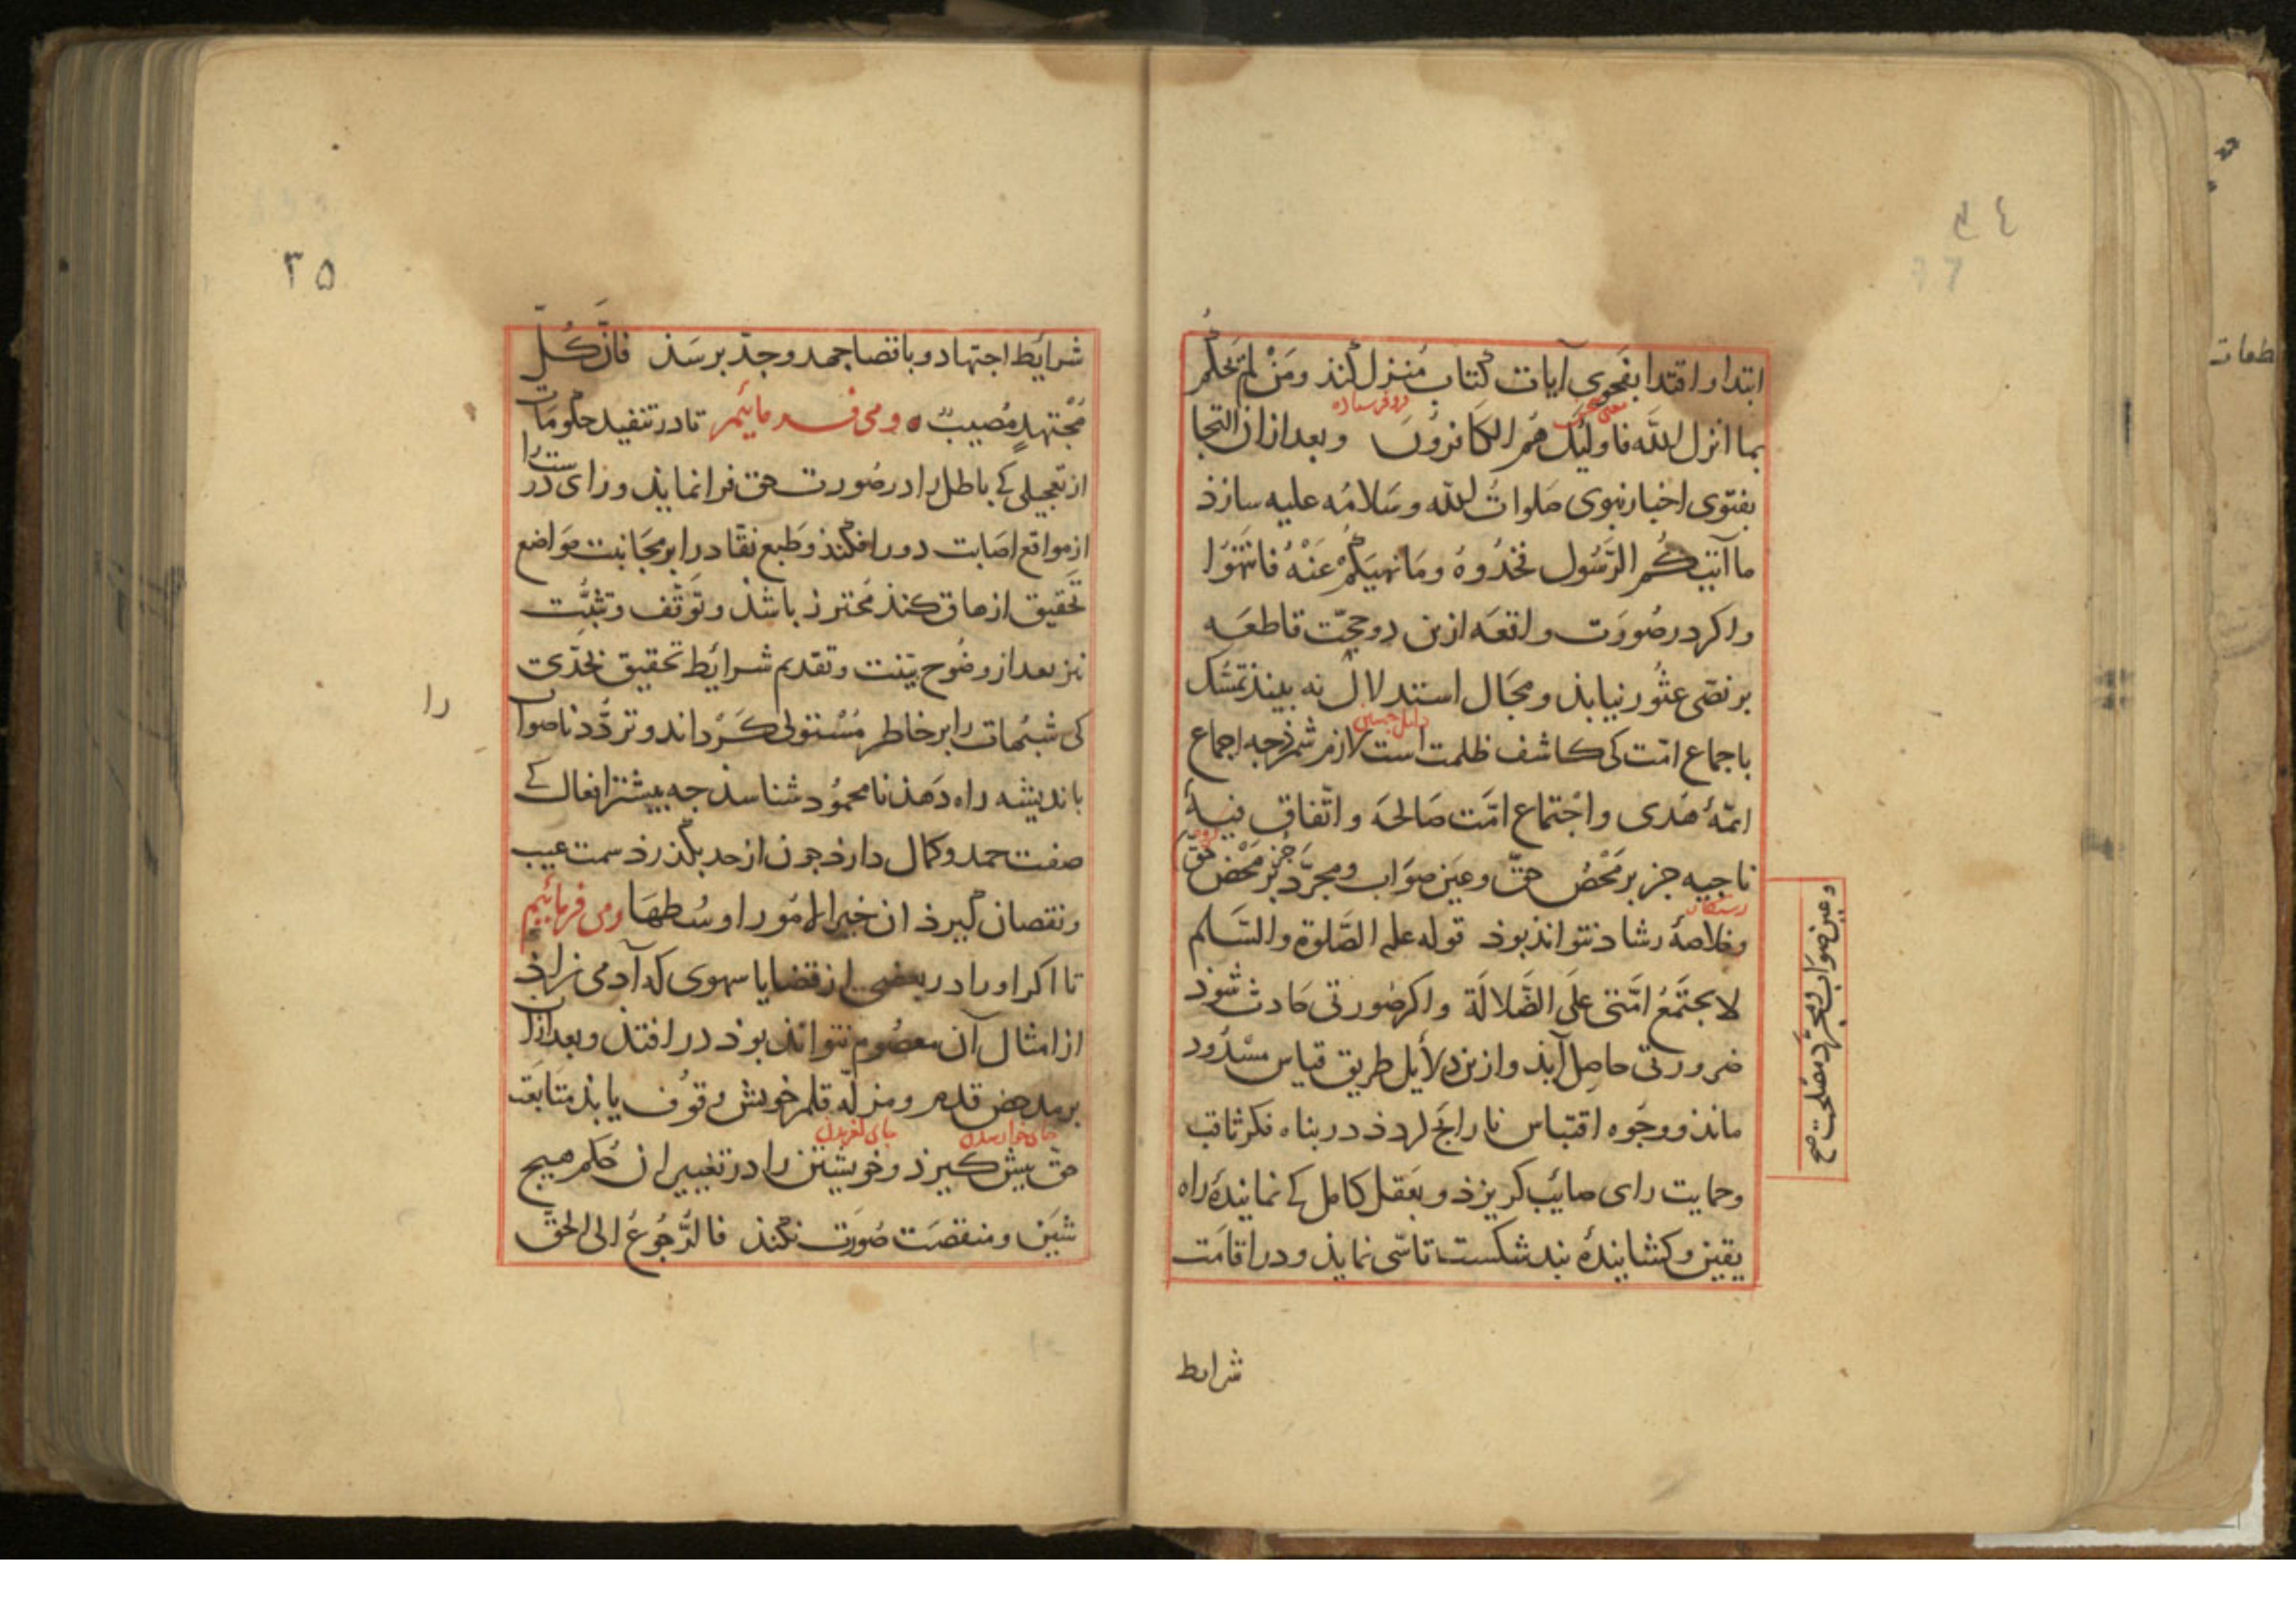 ابتدا و اقتدا بفحوی آیات کتاب منزل کند ومَنْ لَمْ یَحْکُمْ
بما انزل الله فاولیک هُمُ الکَافِرُونَ وبعد ازان التجا
بفتوی اخبار نبوی صلوات الله وسَلامُه علیه سازذ
ما آتیکُم الرَّسُول فخذُوهُ ومَا نهیکُمْ عَنْهُ فَانْتَهُوا
واکر در صُورَت واقعَه ازین دو حجّت قاطعَه
بر نصّی عثُور نیابذ و مجَال استدلال نه بیند تمسُّک
باجماع امّت کی کاشف ظلمت است لازم شمرذ جه اجماع
ائمّهٔ هُدی واجْتماع امَّت صَالحَه واتّفاق فیهٔ
ناجیه جز بر مَحْض حقّ وعَین صوَاب ومجرَّد جُز بر مَحْض حَقّ
رستکار
وخلاصهٔ رشاد نتواند بوذ قوله علیه الصَّلوة والسَّلم
لا یجتَمَعُ امَّتی علَی الضَّلالَة واکر صُورتی حَادث شوذ
ضرورتی حاصِل آیذ وازین دلایل طریق قیاس مسْدُود
مانذ و وجُوه اقتباس نارایج کردذ در بناه فکر ثاقب
وحمایت رای صائِب کریزذ و بعَقل کامل کی نمایندهٔ راه
یقین وکشایندهٔ بند شکست تاسّی نمایذ ودر اقامَت
وعین صوَاب ومجرّد مصْلحت صح
شرایط
٣٥
شرایط اجتهاد و باقصا جهد وجدّ برسَذ فانَّ کُلَّ
مُجْتهدٍ مُصیبٌ ومی فرمائیم تا در تنفیذ حکومَات
از تعجیلی کی باطل را در صُورت حق فرا نمایذ و رای درست را
از مواقع اصَابت دور افکند وطَبع نقّاد را بر مجَانبت مَواضع
تَحقیق ازهاق کنذ مُحترز باشذ وتَوثّف وتثبُّت
نیز بعد از وضُوح بیّنت وتقدیم شرایط تحقیق بحدّی
کی شبُهات را بر خاطر مُسْتولی کَرداند وتردُّد ناصواب
را
باندیشه راه دَهذ نامحمُود شناسذ جه بیشتر افعال کی
صفت حمد وکمال دارذ جون از حد بکذرذ سمت عیب
ونقصان کیرذ ان خیر الامُور اوسُطهَا ومی فرمائیم
تا اکر او را در بعضی از قضایا سهوی که آدمی زاذ
از امثال آن معصُوم نتوانذ بوذ در افتذ وبعد ازان
بر مدحض قدم ومزلّه قلم خویش وقوُف یابذ متابَعَت
جای لغزیدن
حق بیش کیرذ وخویشتن را در تغییر ان حُکم هیج
شَین ومنقصَت صُورَت نکند فالرُّجُوعُ الی الحَقّ